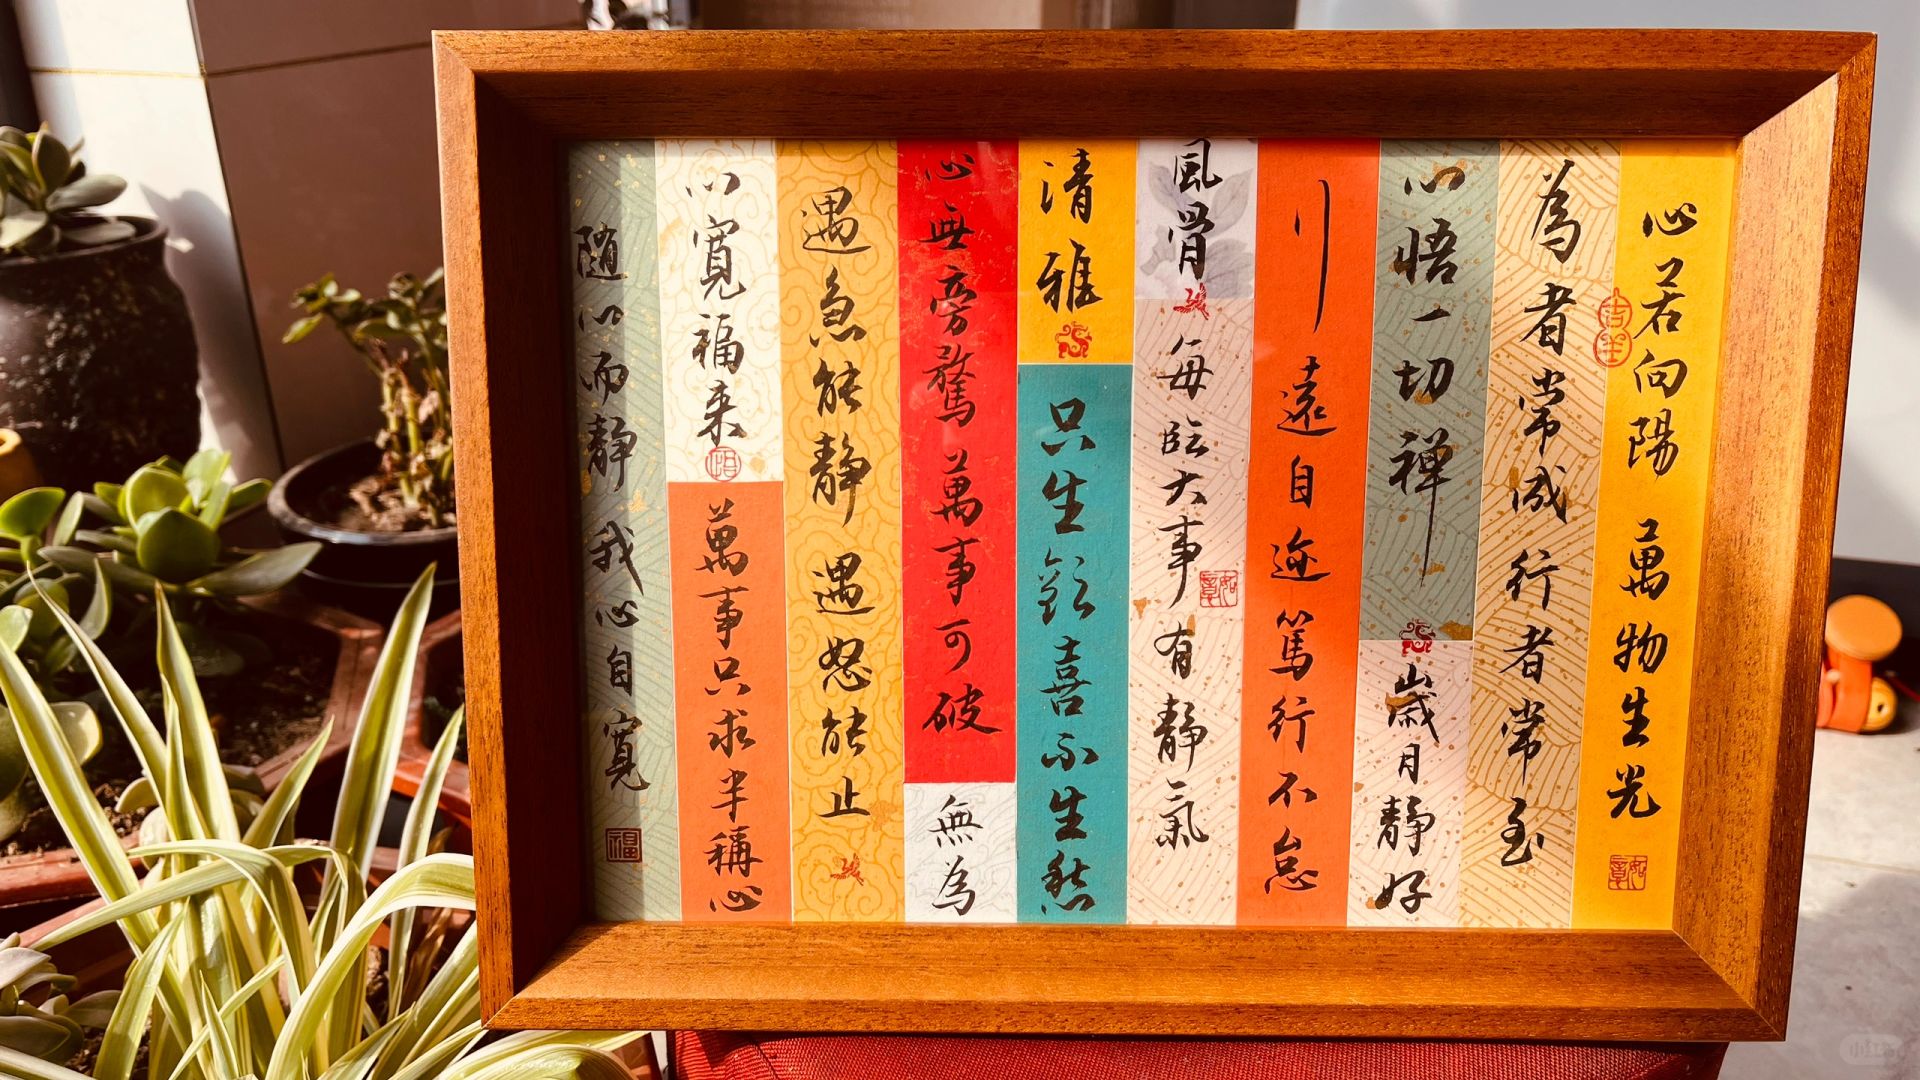 心若向陽 萬物生光
為者常成 行者常至
心悟一切禅
歲月静好
行遠自迩 篤行不怠
風骨
每臨大事有静氣
清雅
只生歡喜不生愁
心無旁騖萬事可破
無為
遇急能静 遇怒能止
心寬福来
萬事只求半稱心
随心而静 我心自寬
福
小红书